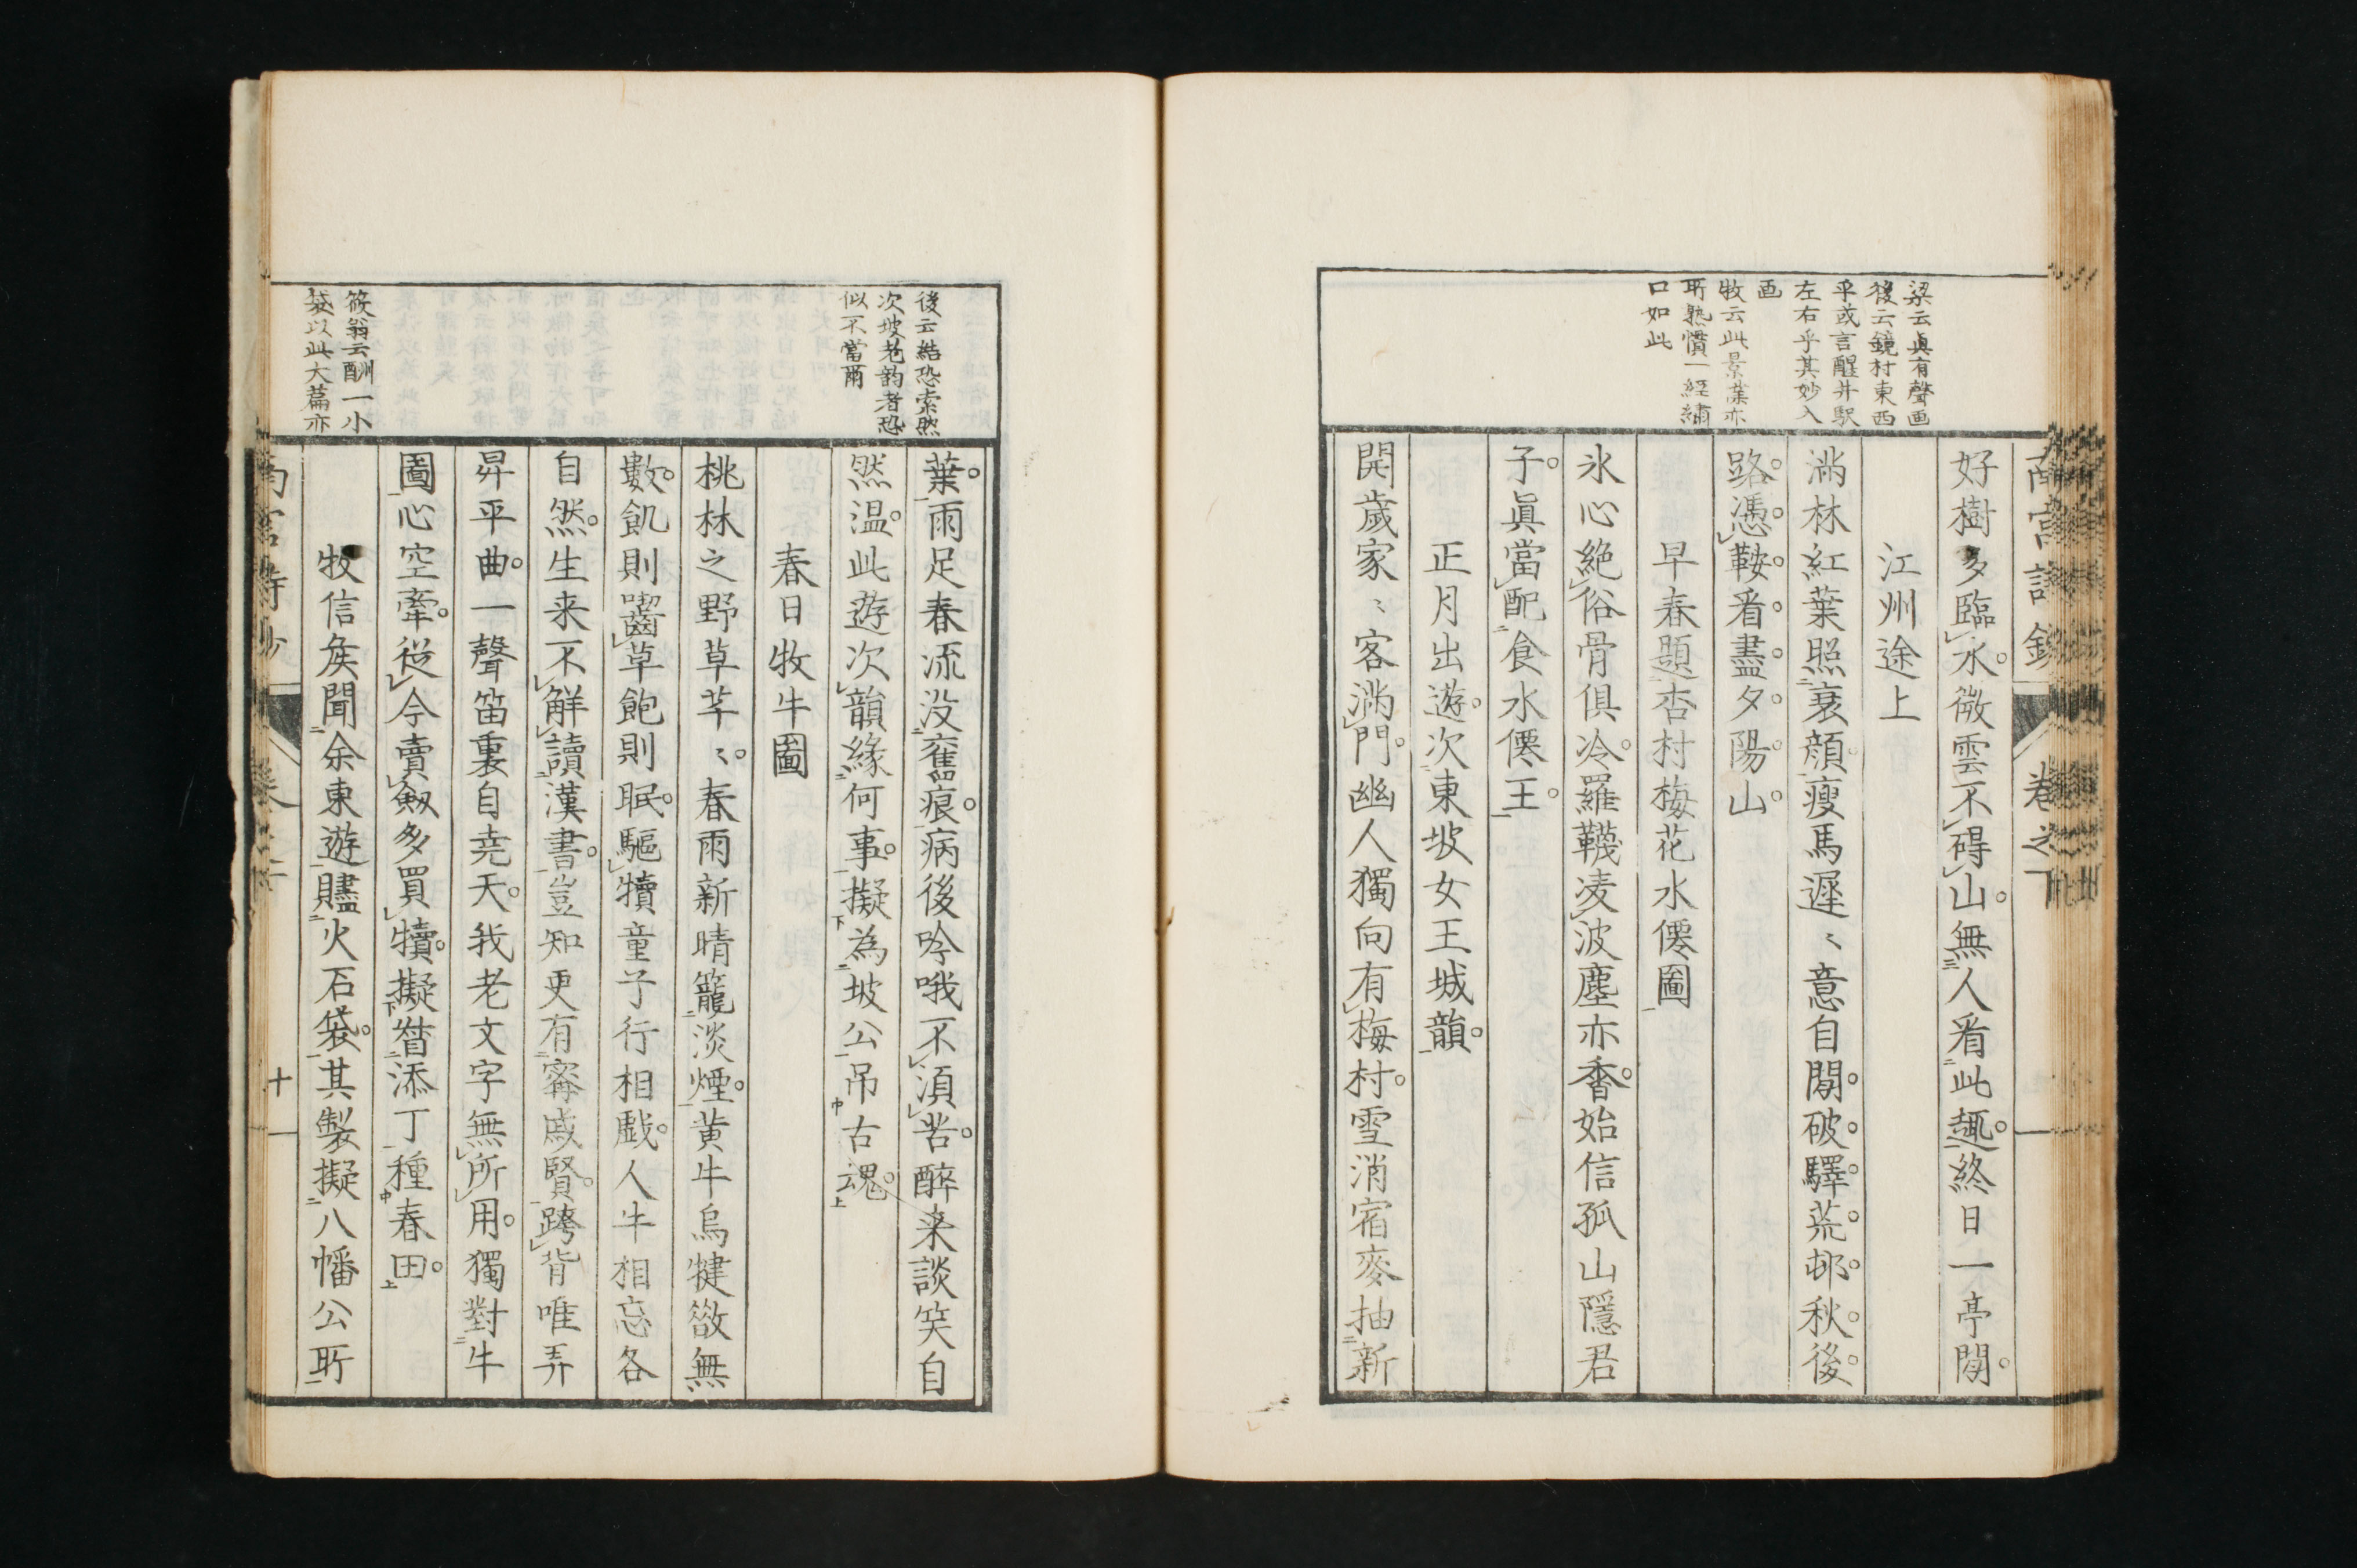 梁云眞有聲画
後云鏡村東西
乎或言醒井駅
左右乎其妙入
画
牧云此景葉亦
所熟慣一經繡
口如此
好樹多臨水微雲不碍山無人看此趣終日一亭閒
江州途上
満林紅葉照衰顔瘦馬遲〻意自閒破驛荒邨秋後
路憑鞍看盡夕陽山
早春題杏村梅花水僊圖
氷心絶俗骨俱冷羅韈凌波塵亦香始信孤山隱君
子眞當配食水僊王
正月出遊次東坡女王城韻
開歲家〻客満門幽人獨向有梅村雪消宿麥抽新
卷之下
後云結恐索然
次坡老韵者恐
似不當爾
筱翁云酬一小
袋以此大篇亦
葉雨足春流没舊痕病後吟哦不須苦醉来談笑自
然温此遊次韻緣何事擬為坡公吊古魂
春日牧牛圖
桃林之野草芊〻春雨新晴籠淡煙黄牛烏犍散無
數飢則囓草飽則眠驅犢童子行相戯人牛相忘各
自然生来不解讀漢書豈知更有甯戚賢跨背唯弄
昇平曲一聲笛裏自尭天我老文字無所用獨對牛
圖心空牽從今賣劔多買犢擬昝添丁種春田
牧信矦聞余東遊贐火石袋其製擬八幡公所
十